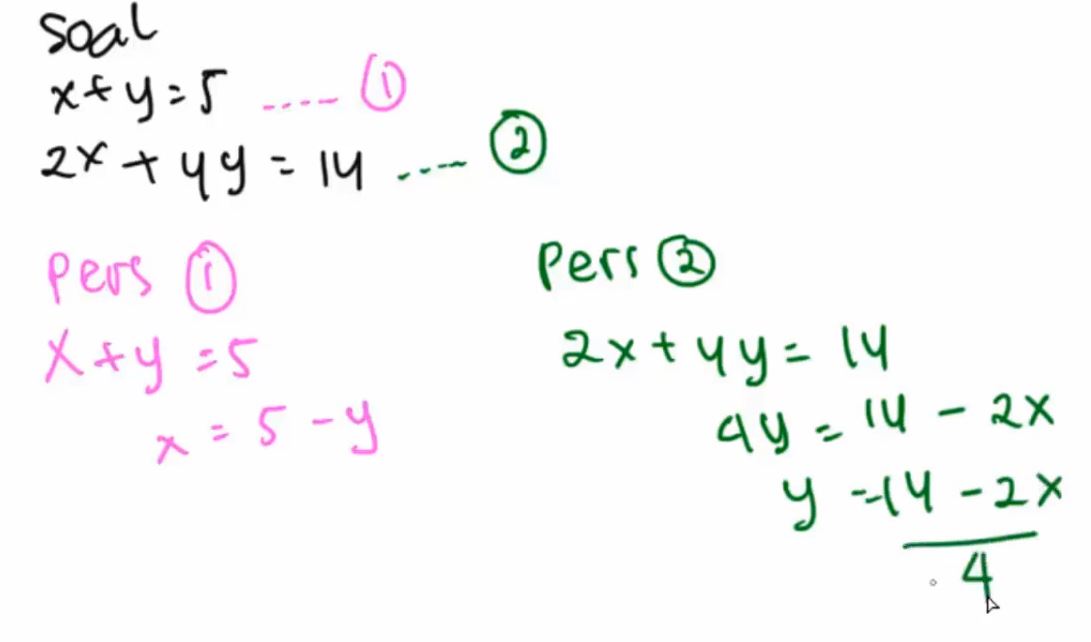 Soal
x+y=5 ..... ①
2x + 4y = 14 ..... ②
Pers ①
x + y = 5
x = 5 - y
Pers ②
2x + 4y = 14
4y = 14 - 2x
y = 14 - 2x
4